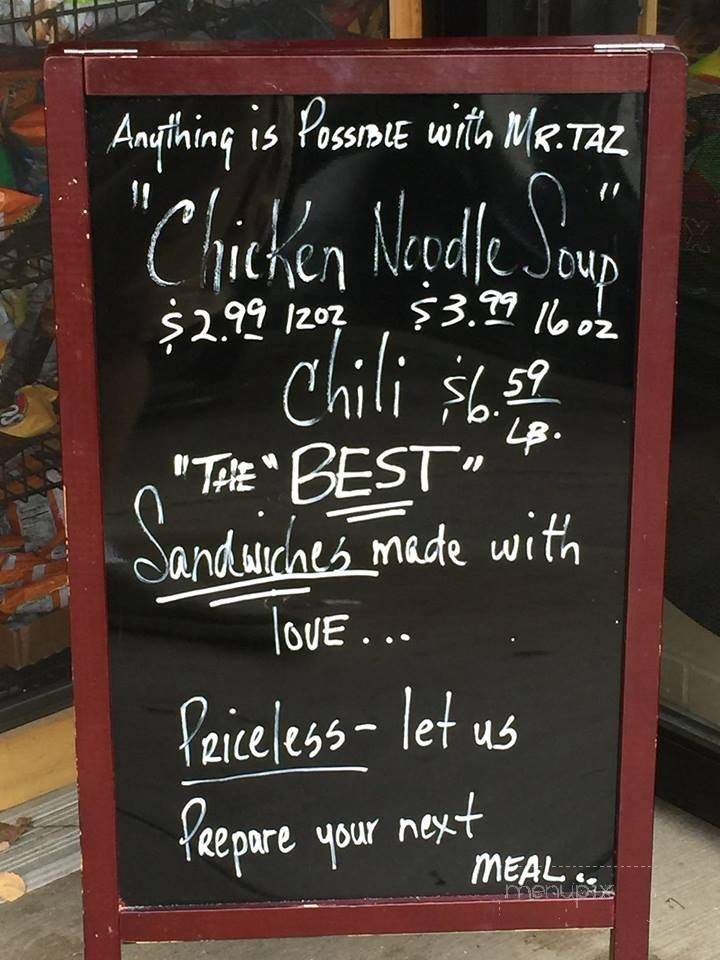 Anything is Possible with Mr. Taz
"Chicken Noodle Soup"
$2.99 12oz $3.99 16 oz
Chili $6.59
LB.
"The "BEST"
Sandwiches made with
love...
Priceless- let us
Prepare your next
MEAL..
menupix